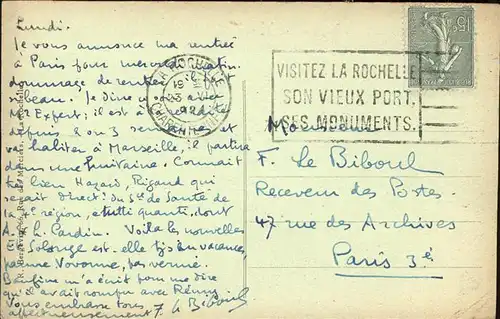 Lundi.
Je vous annonce ma rentrée
à Paris pour mercredi matin.
dommage de rentrer il fait
si beau. Je dîne avec
Mr Expert, il est à
depuis 2 ou 3 semaines et
va habiter à Marseille, il partira
dans une huitaine. Connait
très bien Hazard, Rigaud qui
serait direct. du Sce de Santé de
la 7e région, e tutti quanti, dont
A. Ch. Pardin. Voilà les nouvelles
Solange est-elle tjs en vacances,
pauvre Vovonne, pas vernie.
m'a écrit pour me dire
qu'il avait rompu avec Rémy
Vous embrasse tous
affectueusement. F. Le Biboul
LA ROCHELLE
VISITEZ LA ROCHELLE
SON VIEUX PORT.
SES MONUMENTS.
Monsieur
F. Le Biboul
Receveur des Postes
47 rue des Archives
Paris 3è